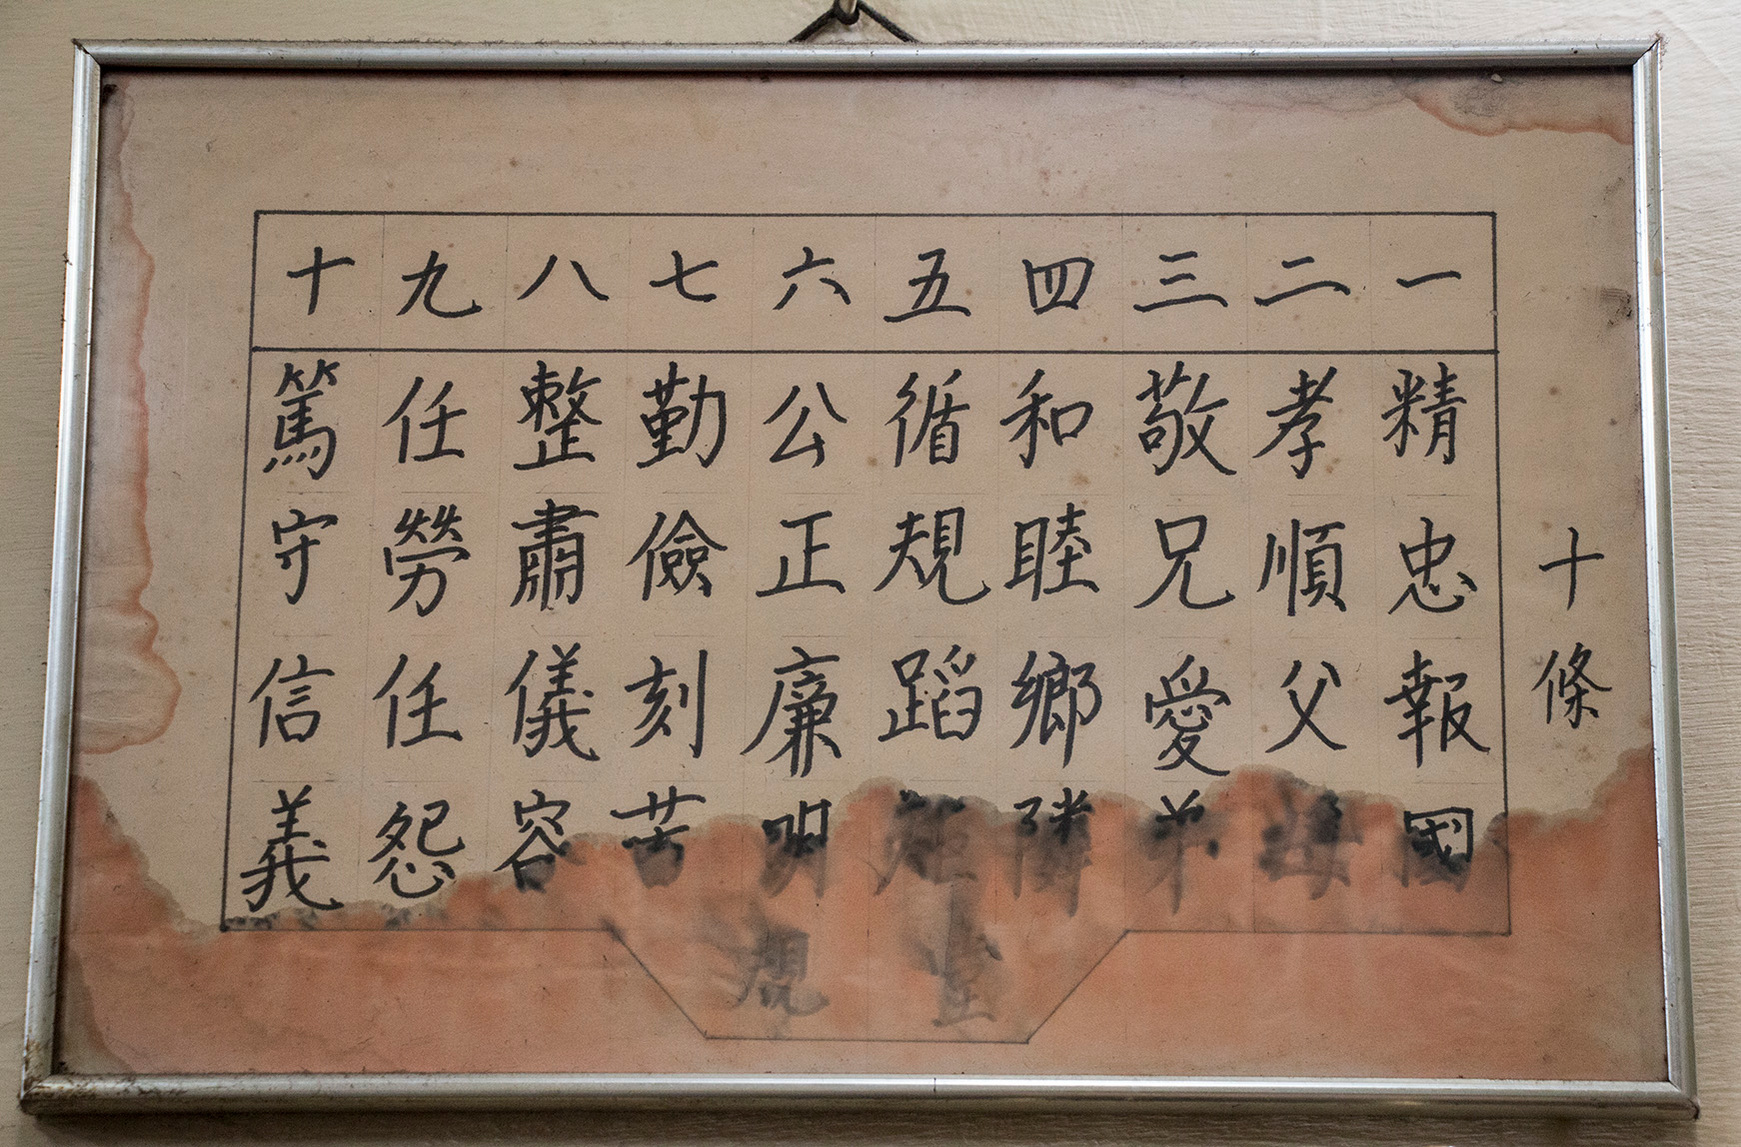 十條
一 精忠報國
二 孝順父母
三 敬兄愛弟
四 和睦鄉隣
五 循規蹈矩
六 公正廉明
七 勤儉刻苦
八 整肅儀容
九 任勞任怨
十 篤守信義
堂規